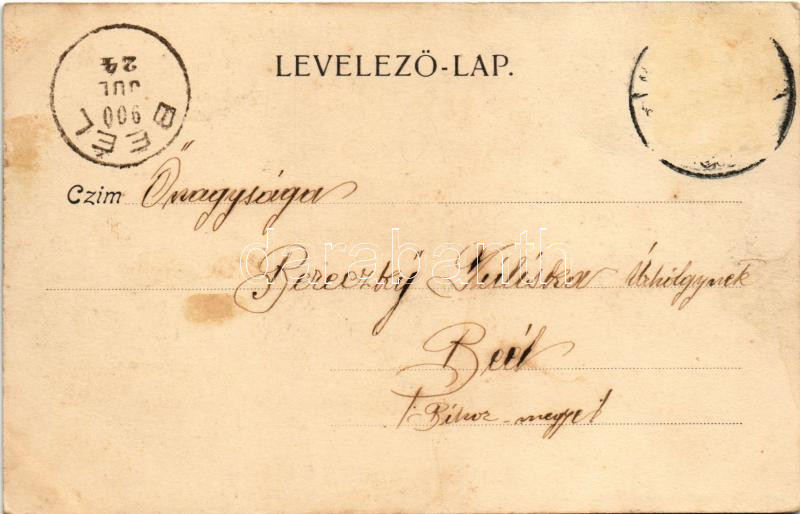 LEVELEZŐ-LAP.
BEÉL
900
JUL
24
Czim Őnagysága
Bereczky Juliska Úrhölgynek
Beél
/: Bihar-megye :/
darabanth